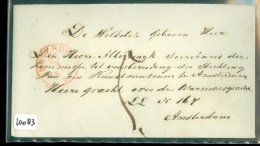 De Weledele Geboren Heer
Den Heere Alberdingk Secretaris der
Commissie tot voorbereiding der Stichting
van een Kunstmuseum te Amsterdam
Heere Gracht over de Warmoesgracht
LL N 167
Amsterdam
10083